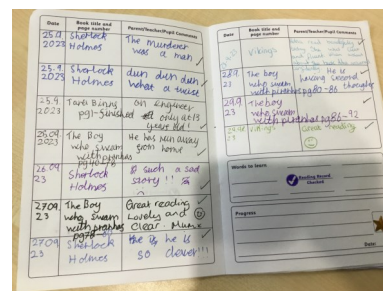 Date
Book title and
page number
Parent/Teacher/Pupil Comments
25.9
2023
Sherlock
Holmes
The murderer
was a man
25.9
2023
Sherlock
Holmes
duh duh duh
what a twist
25.9
2023
pg1-finished
only at 13
years old!
26.09
2023
The Boy
who swam
with piranhas
He has run away
from home
26.09
23
Sherlock
Holmes
such a sad
story!
27.09
23
The Boy
who swam
with piranhas
Great reading
Lovely and
clear. Mum x
27.09
23
Sherlock
Holmes
he is
so clever!!!
Date
Book title and
page number
Parent/Teacher/Pupil Comments
Vikings
28.9
23
The boy
who swam
with piranhas pg80-86
He is
having second
thoughts
29.9
23
The boy
who swam
with piranhas pg86-92
Vikings
Great reading
Words to learn
Reading Record
Checked
Progress
Date: